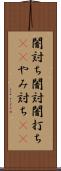 闇討ち闇討闇打ち
やみ討ち